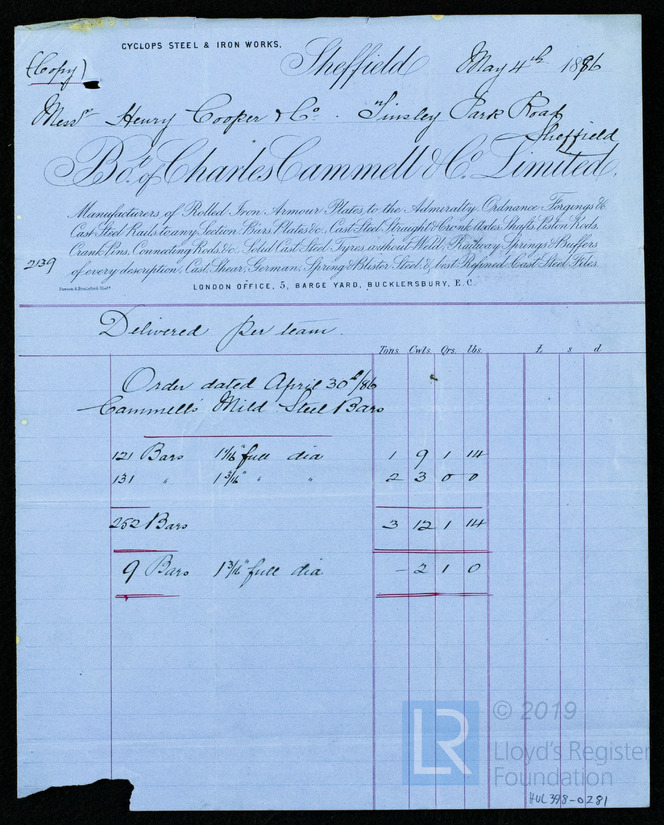 CYCLOPS STEEL & IRON WORKS,
(Copy)
Sheffield May 4th 1886
Messrs Henry Cooper & Co. Tinsley Park Road
Sheffield
Bot. of Charles Cammell & Co. Limited.
Manufacturers of Rolled Iron Armour Plates, to the Admiralty, Ordnance Forgings &c
Cast Steel Rails to any Section, Bars, Plates &c. Cast Steel Straight & Cronk Axles, Shafts, Piston Rods,
Crank Pins, Connecting Rods &c. Solid Cast Steel Tyres without Weld, Railway Springs & Buffers
2139
of every description, Cast, Shear, German, Spring & Blister Steel, & best Refined Cast Steel Files.
LONDON OFFICE, 5, BARGE YARD, BUCKLERSBURY, E.C.
Delivered per team.
Tons Cwts. Qrs. lbs. £ s d
Order dated April 30th/86
Cammell's Mild Steel Bars
121 Bars 1 1/16" full dia 1 9 1 14
131 " 1 3/16 " " 2 3 0 0
252 Bars 3 12 1 14
9 Bars 1 3/16" full dia - 2 1 0
© 2019
LR
Lloyd's Register
Foundation
HUL398-0281